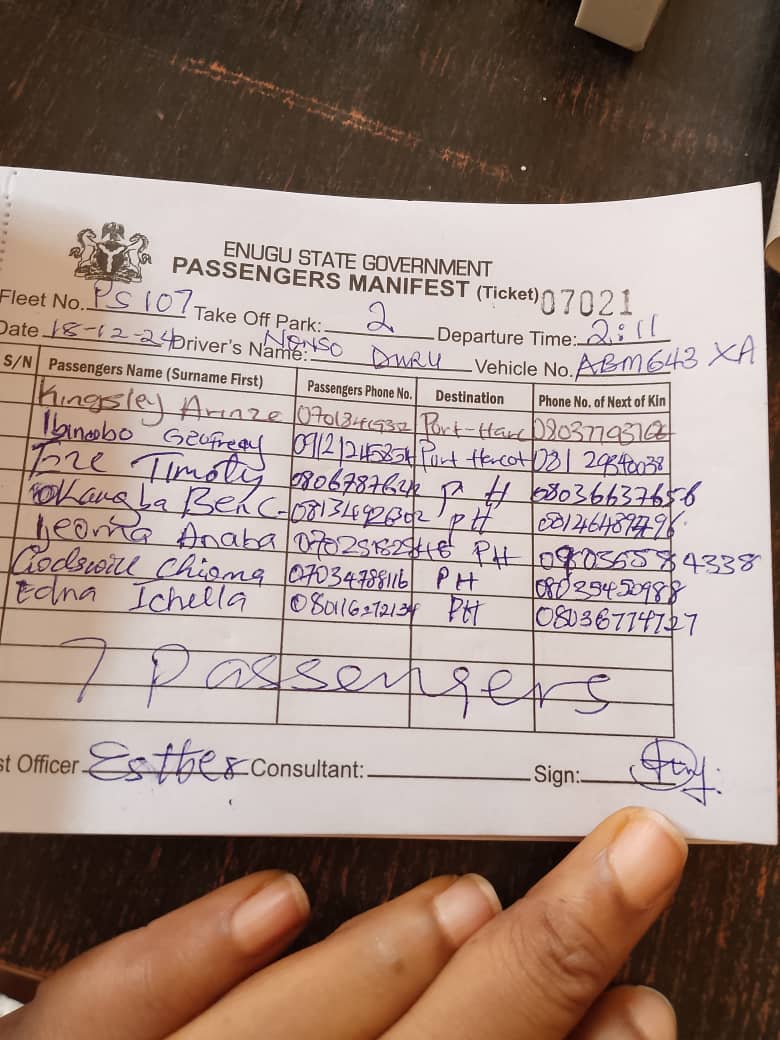 ENUGU STATE GOVERNMENT
PASSENGERS MANIFEST (Ticket) 07021
Fleet No. PS 107 Take Off Park: 2 Departure Time: 2:11
Date 18-12-24 Driver's Name: NONSO DURU Vehicle No. ABM643 XA
S/N Passengers Name (Surname First) Passengers Phone No. Destination Phone No. of Next of Kin
Kingsley Arinze Port-Harc
Geofreey Port Harcot
Eze Timoty P H 08036637656
Okangba Ben C. PH
Ijeoma Anaba PH
Godswill Chioma 07034788116 PH 08039450988
Edna Ichella 080116272134 PH 08036774727
7 Passengers
st Officer Esther Consultant: Sign: